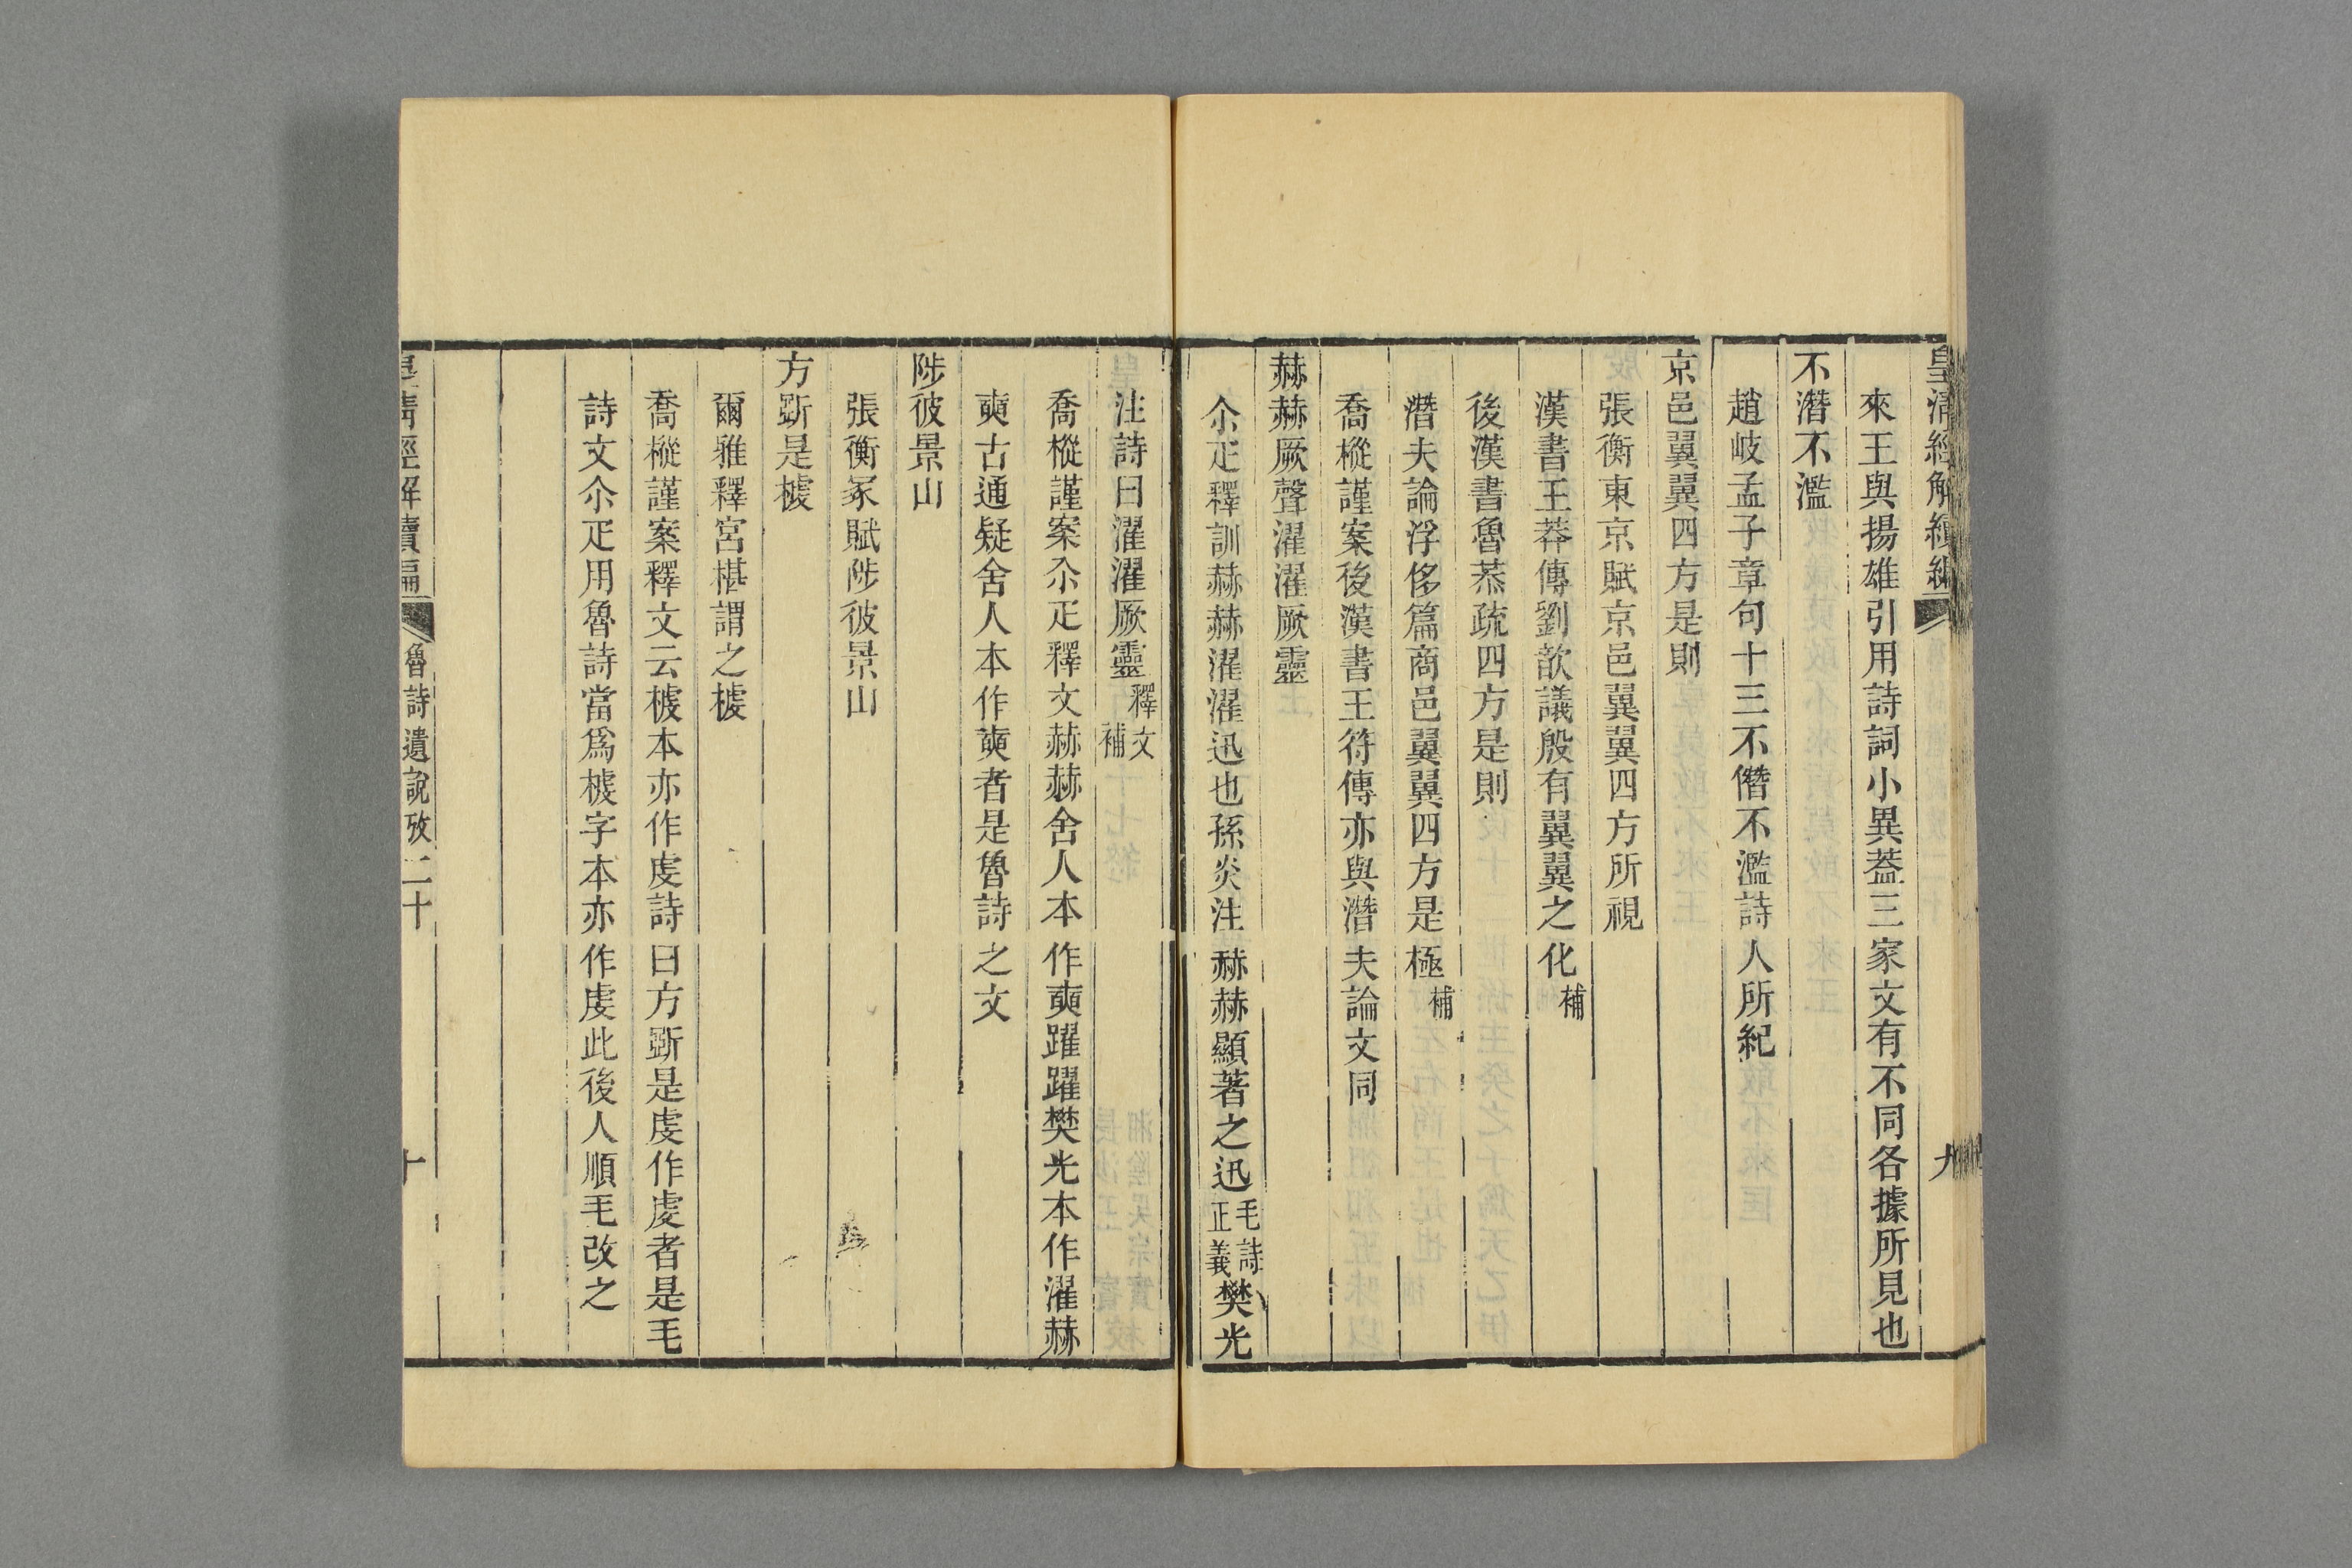 皇清經解續編 九
來王與揚雄引用詩詞小異葢三家文有不同各據所見也
不潛不濫
趙岐孟子章句十三不僭不濫詩人所紀
京邑翼翼四方是則
張衡東京賦京邑翼翼四方所視
漢書王莽傳劉歆議殷有翼翼之化補
後漢書魯恭疏四方是則
潛夫論浮侈篇商邑翼翼四方是極補
喬樅謹案後漢書王符傳亦與潛夫論文同
赫赫厥聲濯濯厥靈
尒疋釋訓赫赫濯濯迅也孫炎注赫赫顯著之迅毛詩正義樊光
注詩曰濯濯厥靈釋文補
喬樅謹案尒疋釋文赫赫舍人本作奭躍躍樊光本作濯赫
奭古通疑舍人本作奭者是魯詩之文
陟彼景山
張衡冢賦陟彼景山
方斲是榩
爾雅釋宮椹謂之榩
喬樅謹案釋文云榩本亦作虔詩曰方斲是虔作虔者是毛
詩文尒疋用魯詩當爲榩字本亦作虔此後人順毛改之
皇清經解續編 魯詩遺說攷二十 十